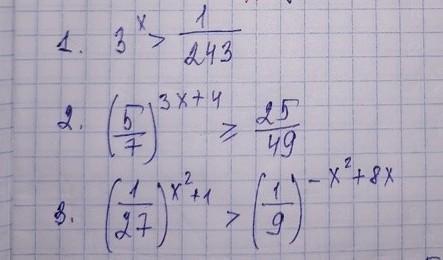 1. 3^x > 1/243
2. (5/7)^(3x+4) ≥ 25/49
3. (1/27)^(x²+1) > (1/9)^(-x²+8x)